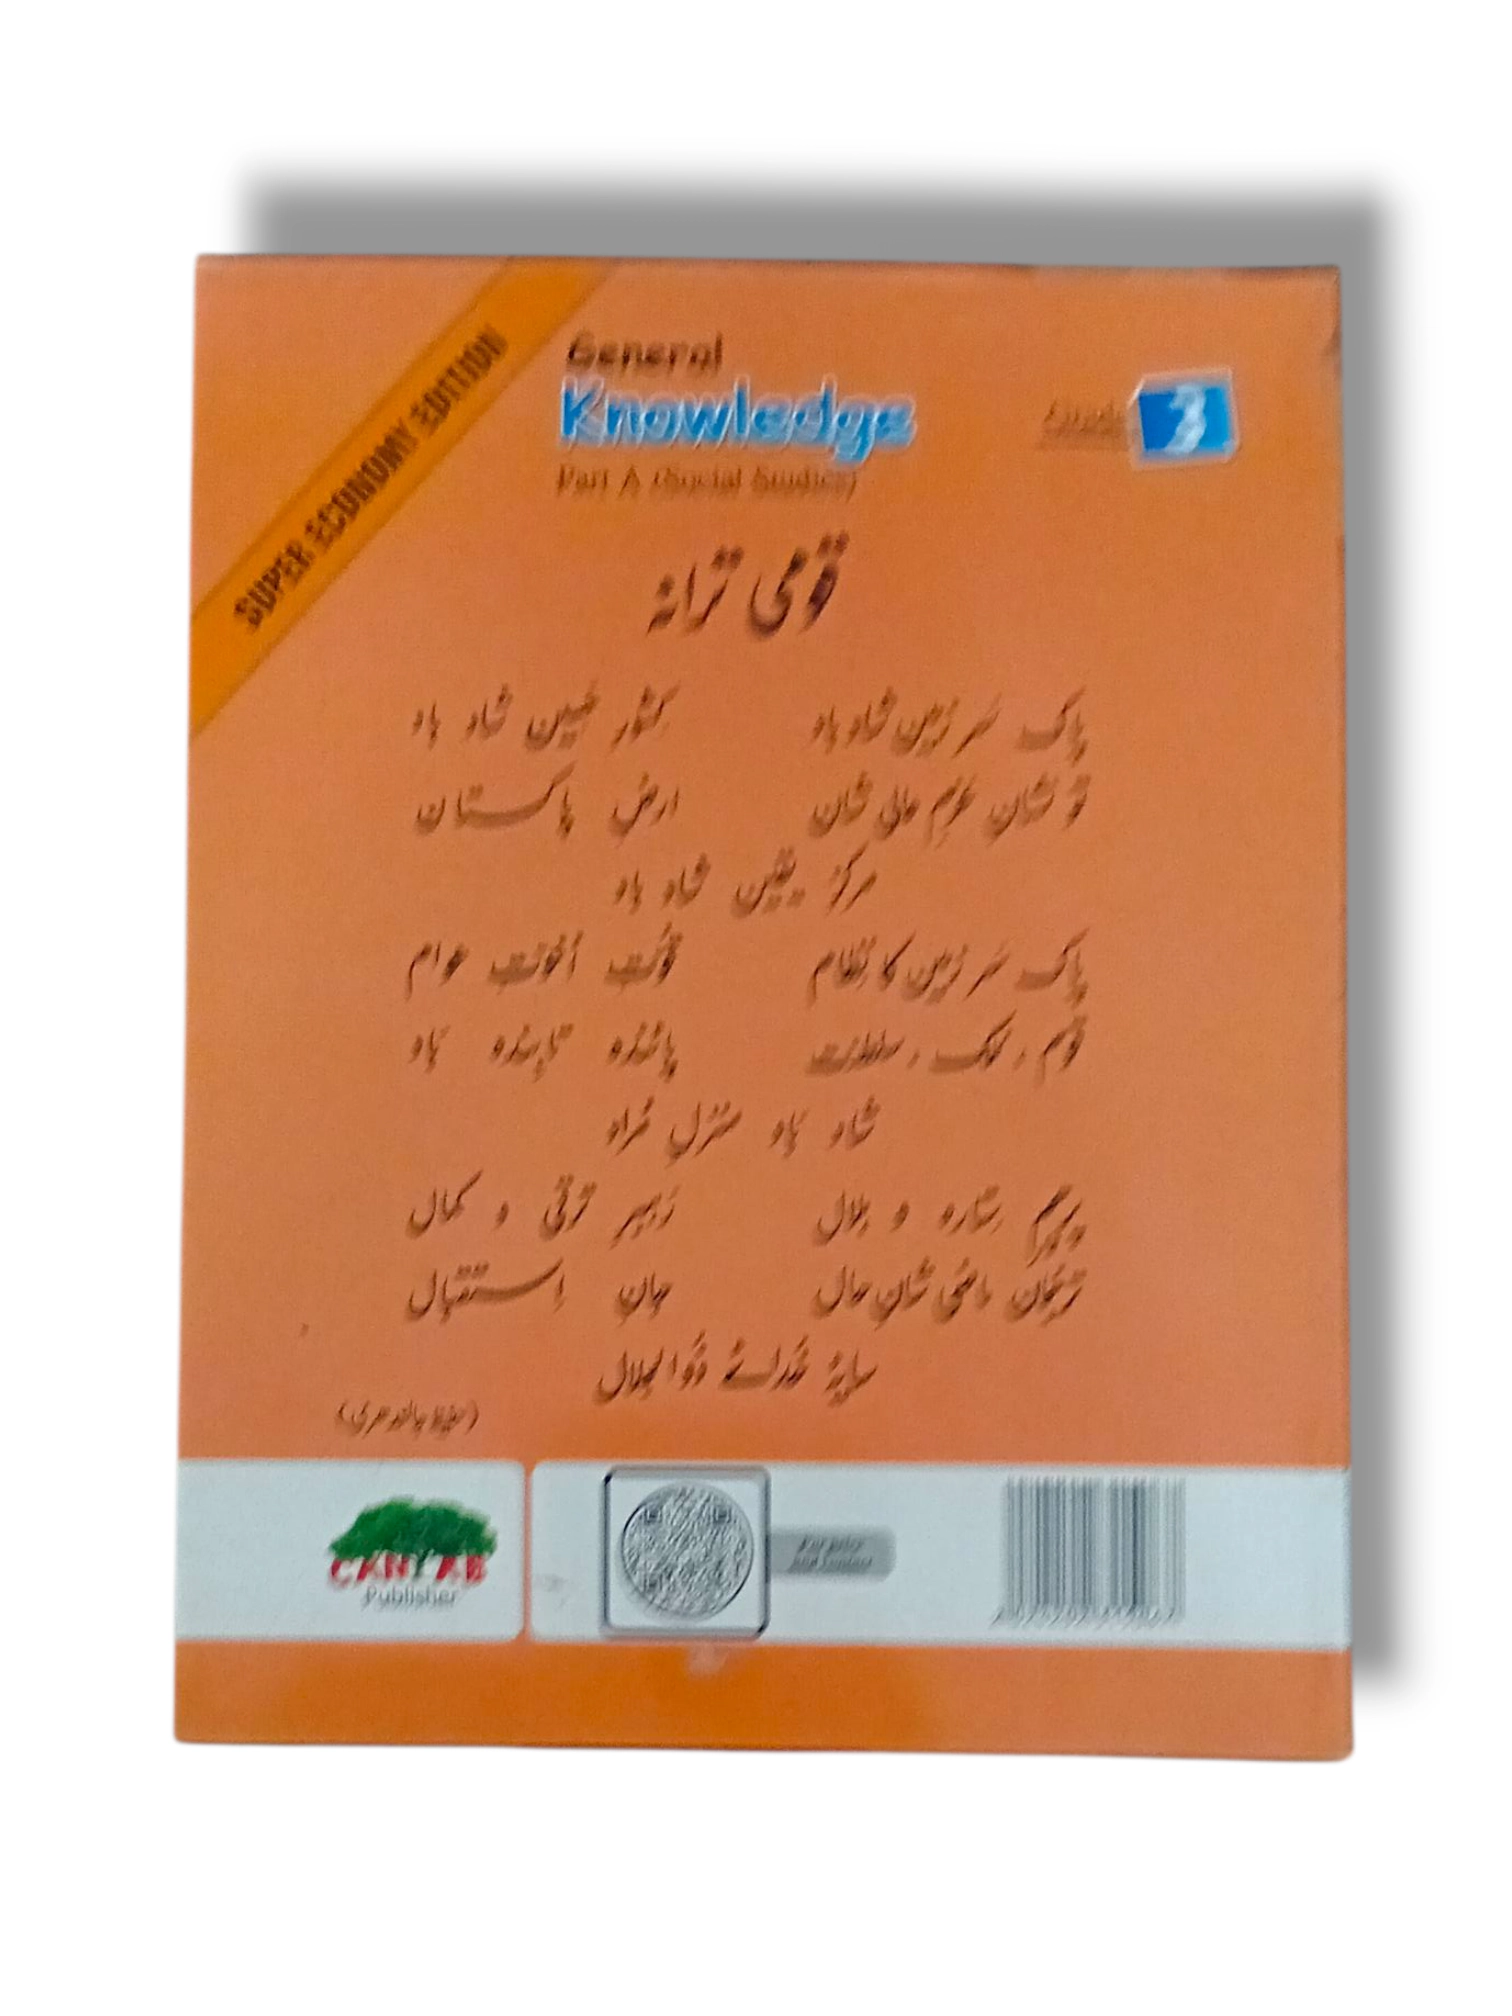 SUPER ECONOMY EDITION
General
Knowledge
Part A (Social Studies)
Grade 3
قومی ترانہ
پاک سَر زمین شاد باد کِشورِ حَسِین شاد باد
تُو نشانِ عزمِ عالی شان ارضِ پاکستان
مرکزِ یقین شاد باد
پاک سَر زمین کا نظام قُوّتِ اُخوّتِ عوام
قوم ، مُلک ، سلطنت پائندہ تابندہ باد
شاد باد منزلِ مُراد
پرچمِ ستارہ و ہلال رہبرِ ترقی و کمال
ترجمانِ ماضی شانِ حال جانِ اِستقبال
سایۂ خُدائے ذُوالجلال
(حفیظ جالندھری)
CANTAB
Publisher